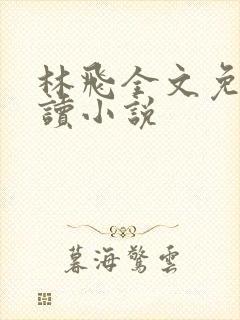 林飛全文免
讀小說
暮海驚雲